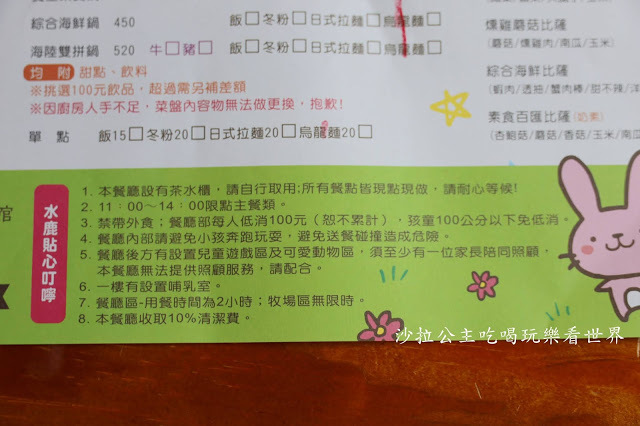 綜合海鮮鍋 450 飯□冬粉□日式拉麵□烏龍麵□
海陸雙拼鍋 520 牛□豬□ 飯□冬粉□日式拉麵□烏龍麵□
均 附 甜點、飲料
※挑選100元飲品，超過需另補差額
※因廚房人手不足，菜盤內容物無法做更換，抱歉!
單 點 飯15□冬粉20□日式拉麵20□烏龍麵20□
燻雞蘑菇比薩
(蘑菇/燻雞肉/南瓜/玉米)
綜合海鮮比薩
(蝦肉/透抽/蟹肉棒/甜不辣/洋
素食百匯比薩(奶素)
(杏鮑菇/蘑菇/香菇/玉米/南瓜
館
水鹿貼心叮嚀
1. 本餐廳設有茶水櫃，請自行取用;所有餐點皆現點現做，請耐心等候!
2. 11：00~14：00限點主餐類。
3. 禁帶外食；餐廳部每人低消100元（恕不累計），孩童100公分以下免低消。
4. 餐廳內部請避免小孩奔跑玩耍，避免送餐碰撞造成危險。
5. 餐廳後方有設置兒童遊戲區及可愛動物區，須至少有一位家長陪同照顧，
本餐廳無法提供照顧服務，請配合。
6. 一樓有設置哺乳室。
7. 餐廳區-用餐時間為2小時；牧場區無限時。
8. 本餐廳收取10%清潔費。
沙拉公主吃喝玩樂看世界